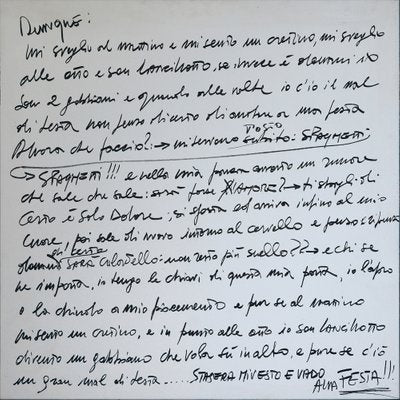 Dunque:
mi sveglio al mattino e mi sento un cretino, mi sveglio
alle otto e son Lancillotto, se invece è domani io
son 2 gabbiani e quando alle volte io c'ho il mal
di testa non penso di certo di andare a una festa
Allora che faccio?: → mi tengo DOPO subito: SPAGHETTI
→ SPAGHETTI!!! e nella mia panza avverto un rumore
che sale che sale: sarà forse AMORE? → ti sbagli di
certo è solo Dolore, si sposta ed arriva infino al mio
cuore, poi sale di nuovo intorno al cervello e penso
di testa
domani SARÀ COLTELLO: non sarò più snello?? → e chi se
ne importa, io tengo le chiavi di questa mia porta, io l'apro
o la chiudo a mio piacimento e pure se al mattino
mi sento un cretino, e in punto alle otto io son Lancillotto
divento un gabbiano che vola su in alto, e pure se c'iò
un gran mal di testa ..... STASERA MI VESTO E VADO
ALLA FESTA!!!